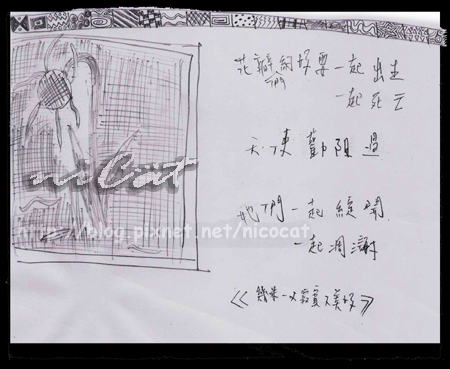 花瓣們約好要一起出生
一起死去
天使勸阻過
niCat
她們一起綻開
http://blog.pixnet.net/nicocat
一起凋謝
《幾米-又寂寞又美好》